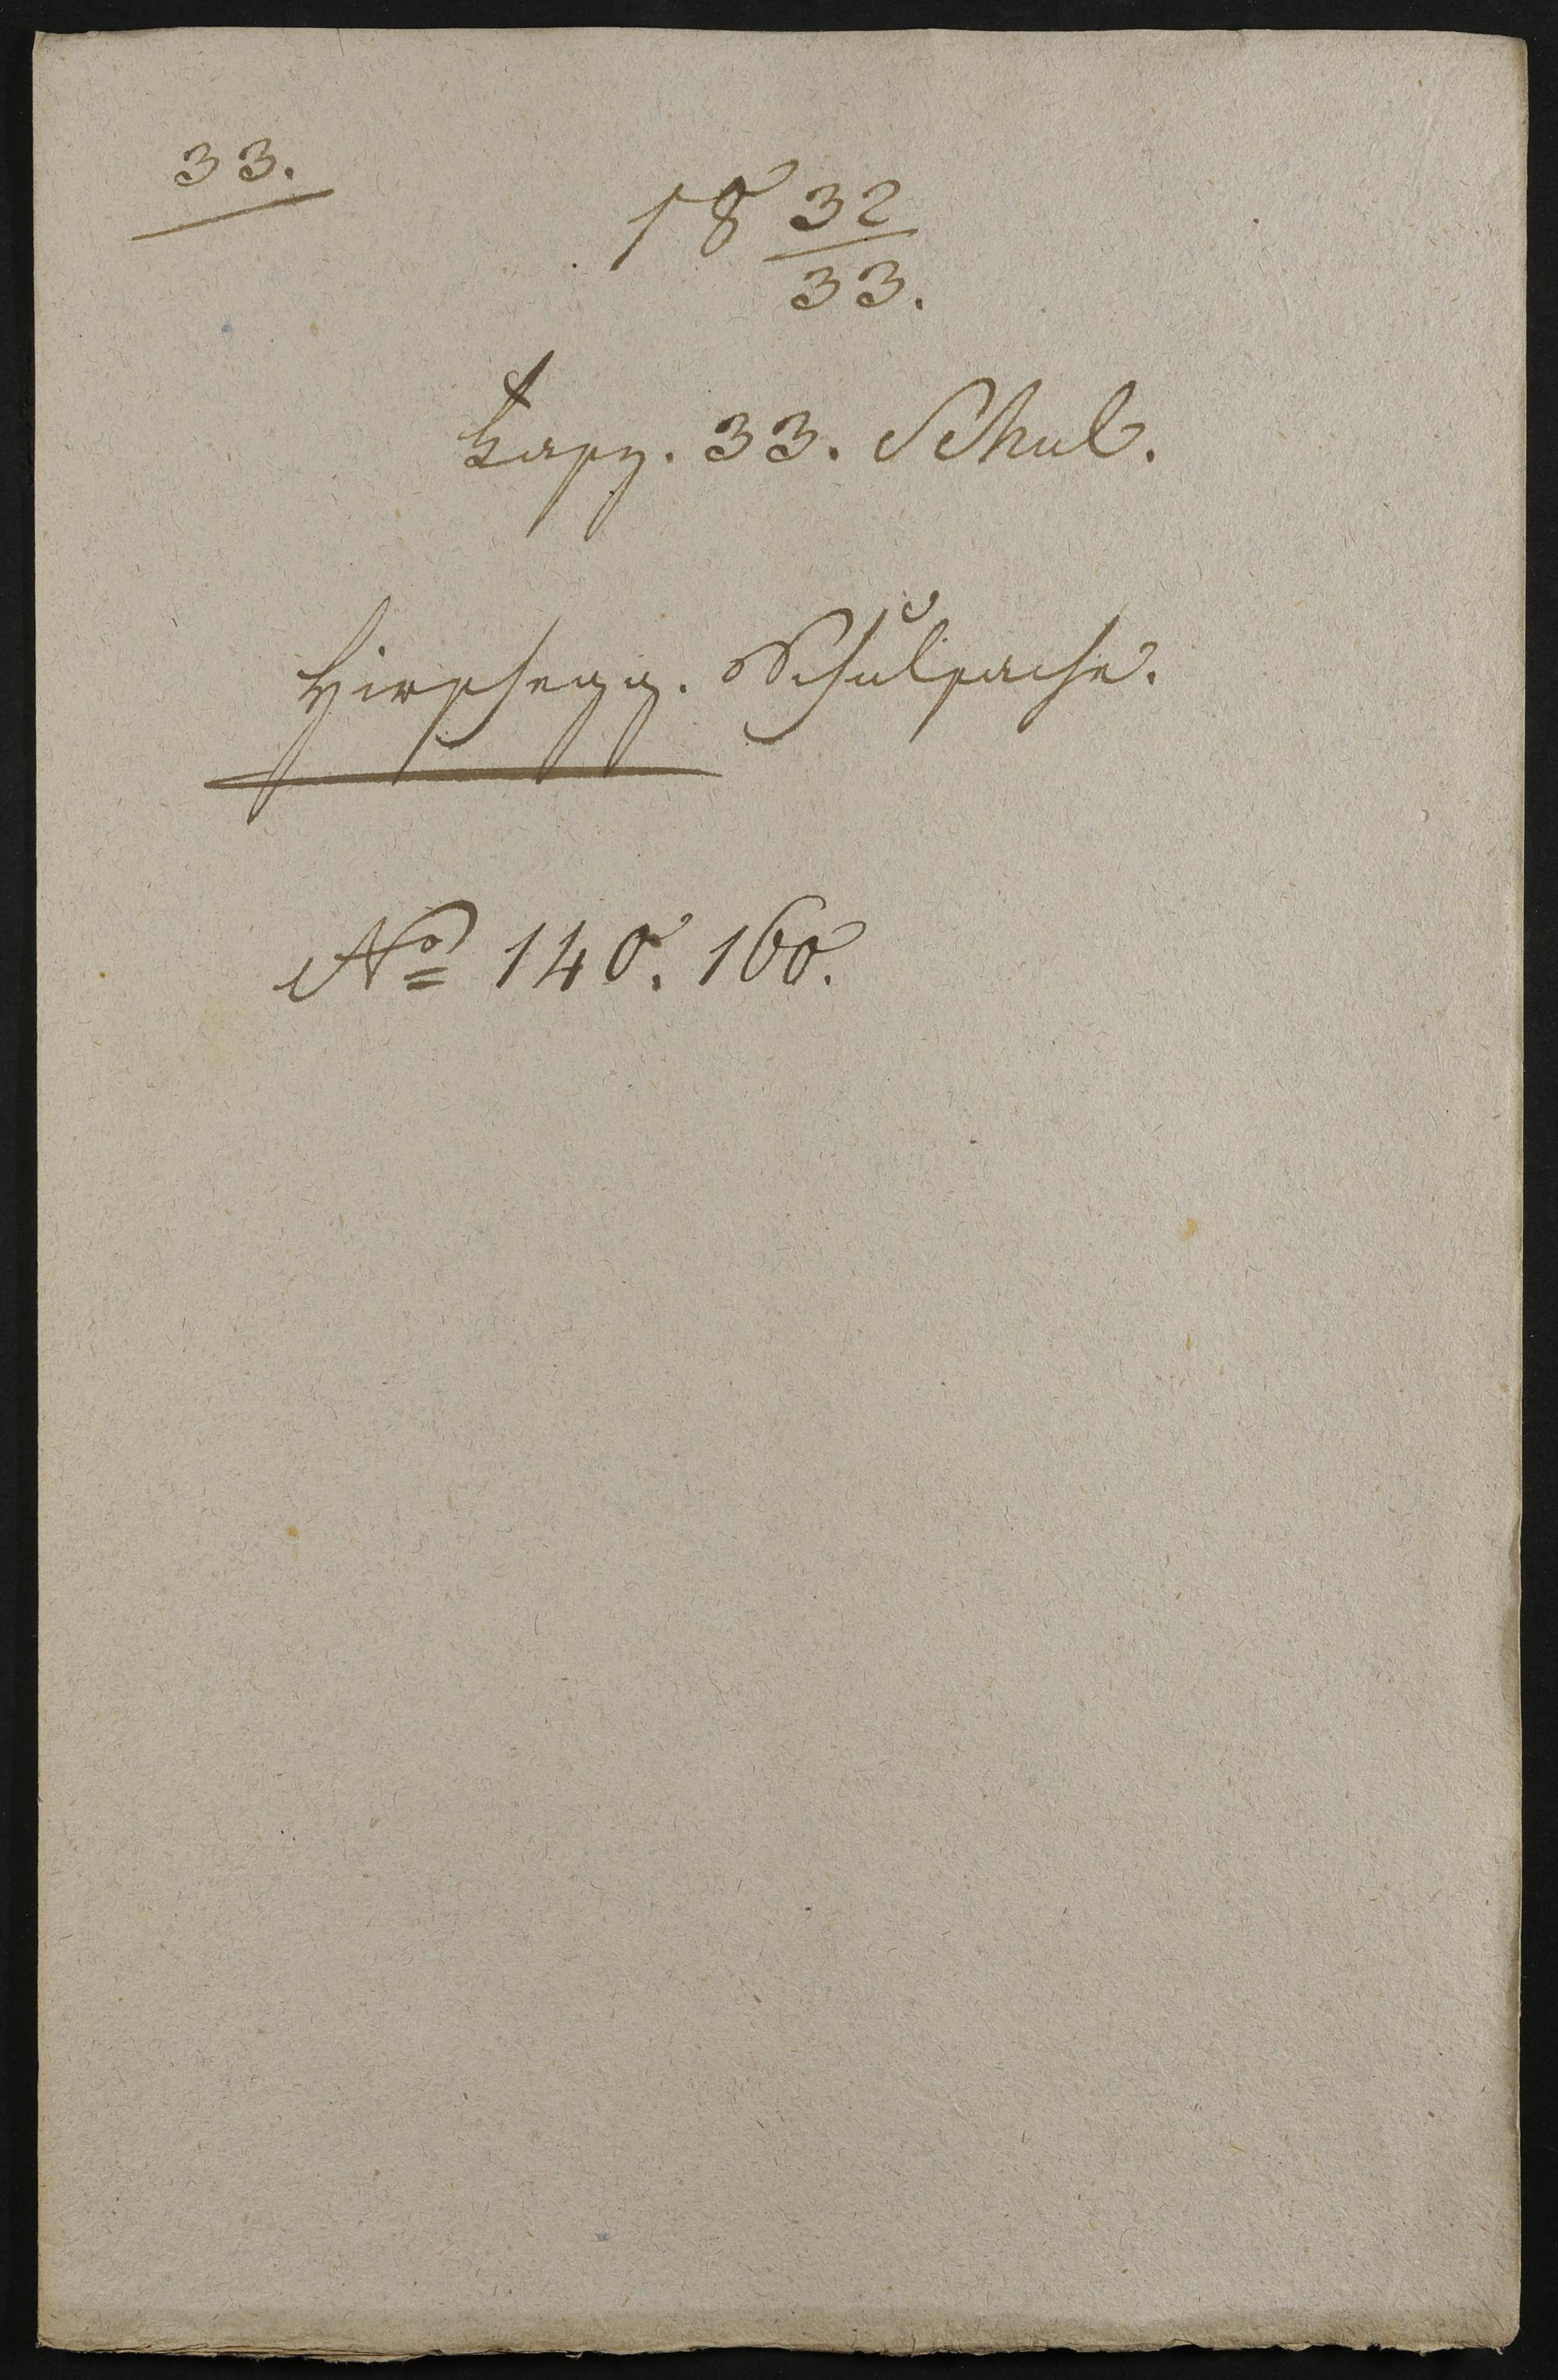 33.
18 32/33.
Fasz. 33. Schul.
Hirschegg. Schulsache.
No 140. 160.